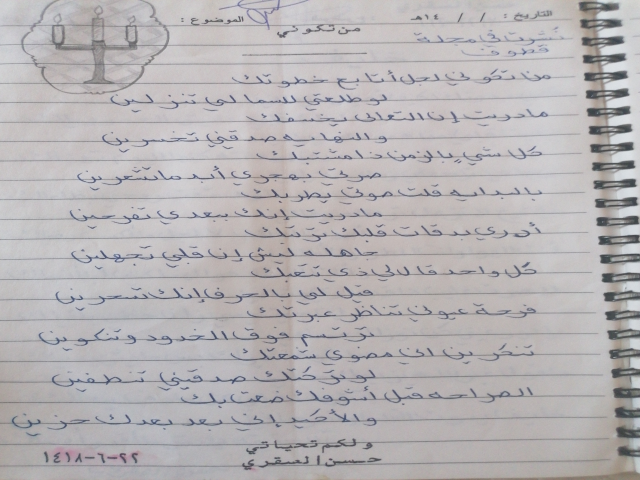 التاريخ : / / ١٤هـ
الموضوع :
من تكوني
نشرت في مجلة
قطوف
من تكوني لجل أتابع خطوتك
لو طلعتي للسما لي تنزلين
مادريت إن التعالي يخسفك
والنهايه صدقيني تخسرين
كل شي بالزمن ذا مشتبك
صرتي تهجري أبد ما تشعرين
بالبدايه قلت صوتي يطربك
مادريت إنك ببعدي تفرحين
أدري بدقات قلبك تربك
جاهله ليش إن قلبي تجهلين
كل واحد قال لي ذي تتعبك
قيل لي بالحرف إنك تسحرين
فرحة عيوني تناظر عبرتك
ترتسم فوق الخدود وتنكوين
تنكرين اني مضوي شمعتك
لو تركتك صدقيني تنطفين
الصراحه قبل أشوفك ضعت بك
والأكيد إني بعد بعدك حزين
ولكم تحياتي
حسن الصقري
٢٢-٦-١٤١٨